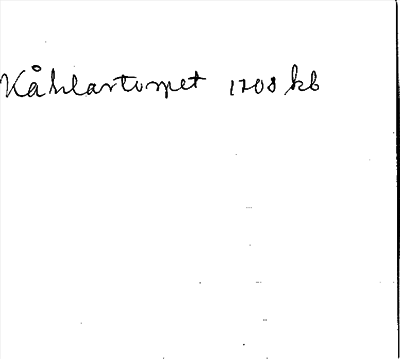 Kåhlartorpet 1708 kb